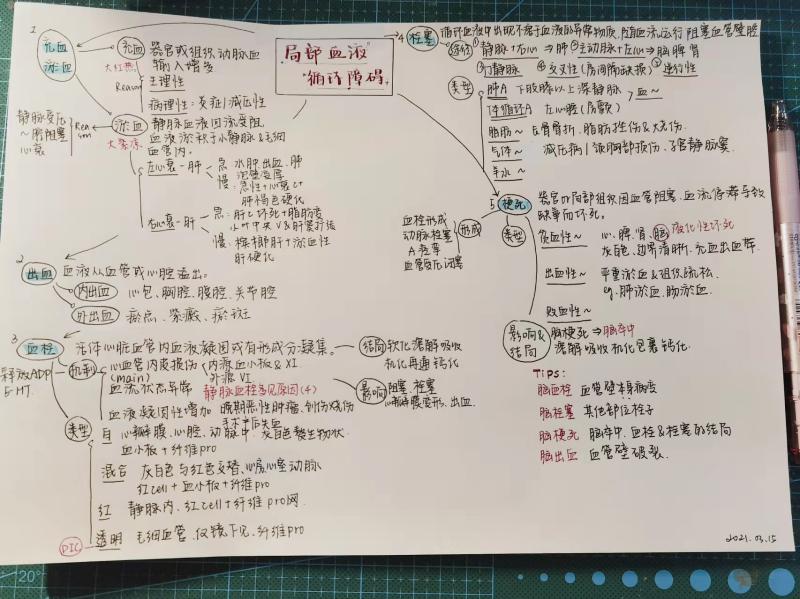 局部血液
循环障碍
1
充血
淤血
充血 器官或组织动脉血
大红热 输入增多
Reason 生理性
病理性：炎症/减压性
淤血 静脉血液回流受阻
大紫凉 血液淤积于小静脉&毛细
血管内。
静脉受压
~腔阻塞
心衰
Reason
左心衰-肺 急：水肿出血、肺
慢：
肺褐色硬化
右心衰-肝 急：肝C坏死+脂肪变
慢：槟榔肝+淤血性
肝硬化
2
出血 血液从血管或心腔溢出。
内出血 心包、胸腔、腹腔、关节腔
外出血 瘀点、紫癜、瘀斑
3
血栓 活体心脏血管内血液凝固或有形成分凝集。
机制 心血管内皮损伤 内源血小板&XI
(main) 外源VI
释放ADP
5-HT
血流状态异常 静脉血栓多见原因(4)
血液凝固性增加 晚期恶性肿瘤、创伤烧伤
手术产后失血
结局 软化溶解吸收
机化再通 钙化
影响 阻塞、栓塞
心瓣膜变形、出血
类型
白 心瓣膜、心腔、动脉中、灰白色赘生物状
血小板+纤维pro
混合 灰白色与红色交替、心房心室动脉
红cell+血小板+纤维pro
红 静脉内、红cell+纤维pro网
透明 毛细血管、仅镜下见、纤维pro
DIC
4 栓塞 循环血液中出现不溶于血液的异常物质，随血流运行阻塞血管管腔
途径 ①静脉+右心⇒肺 ②主动脉+左心⇒脑脾肾
③门静脉 ④交叉性(房间隔缺损) ⑤逆行性
类型
肺A 下肢膝以上深静脉
体循环A 左心腔(房颤)
血~
脂肪~ 长骨骨折、脂肪挫伤&大烧伤
气体~ 减压病/颈胸部损伤、子宫静脉窦
羊水~
5 梗死 器官or局部组织因血管阻塞、血流停滞导致
缺氧而坏死。
形成 血栓形成
动脉栓塞
A痉挛
血管受压闭塞
类型
贫血性~ 心、脾、肾、脑 液化性坏死
灰白色、边界清晰、充血出血带
出血性~ 严重淤血&组织疏松
eg.肺淤血、肠淤血
败血性~
影响&
结局
脑梗死⇒脑卒中
溶解吸收机化包裹钙化
Tips:
脑血栓 血管壁本身病变
脑栓塞 其他部位栓子
脑梗死 脑卒中、血栓&栓塞的结局
脑出血 血管壁破裂.
2021.03.15
20°